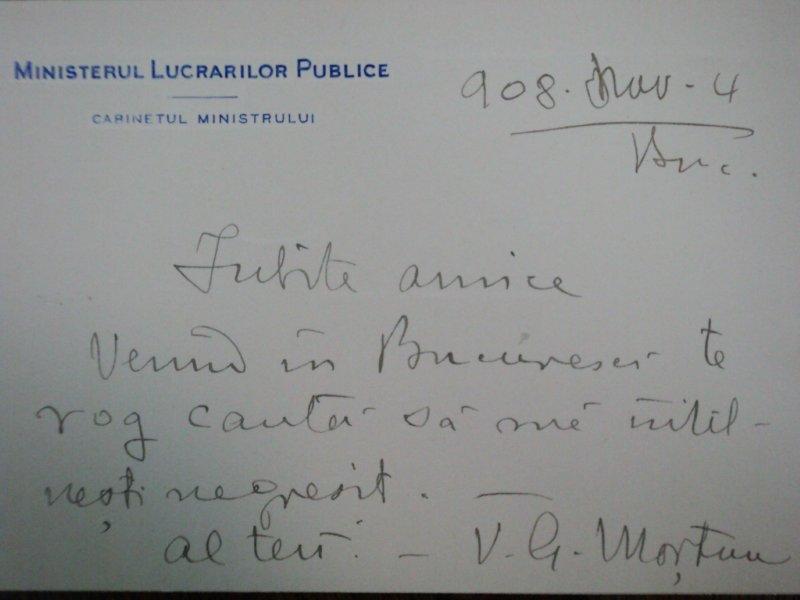 MINISTERUL LUCRARILOR PUBLICE
CABINETUL MINISTRULUI
908. Nov - 4
Buc.
Iubite amice
Venind in Bucuresci te
rog cauta să mĕ intil-
nești negresit. —
al teu. — V. G. Morțun